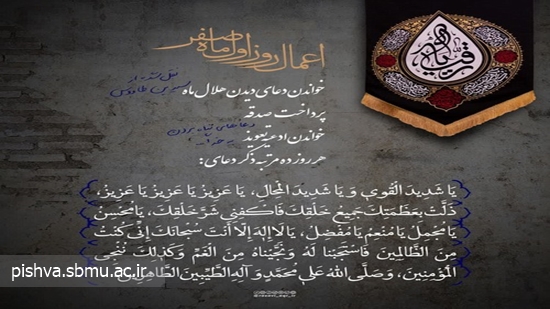 اعمال روز اول ماه صفر
خواندن دعای دیدن هلال ماه
پرداخت صدقه
خواندن ادعیه تعویذ
هر روز ده مرتبه ذکر دعای:
یَا شَدِیدَ الْقُوَی وَ یَا شَدِیدَ الْمِحَالِ، یَا عَزِیزُ یَا عَزِیزُ یَا عَزِیزُ،
ذَلَّتْ بِعَظَمَتِكَ جَمِیعُ خَلْقِكَ فَاكْفِنِی شَرَّ خَلْقِكَ، یَا مُحْسِنُ
یَا مُجْمِلُ یَا مُنْعِمُ یَا مُفْضِلُ، یَا لَا إِلَهَ إِلَّا أَنْتَ سُبْحَانَكَ إِنِّی كُنْتُ
مِنَ الظَّالِمِینَ فَاسْتَجَبْنَا لَهُ وَ نَجَّیْنَاهُ مِنَ الْغَمِّ وَ كَذَلِكَ نُنْجِی
الْمُؤْمِنِینَ، وَ صَلَّی اللهُ عَلَی مُحَمَّدٍ وَ آلِهِ الطَّیِّبِینَ الطَّاهِرِینَ
pishva.sbmu.ac.ir